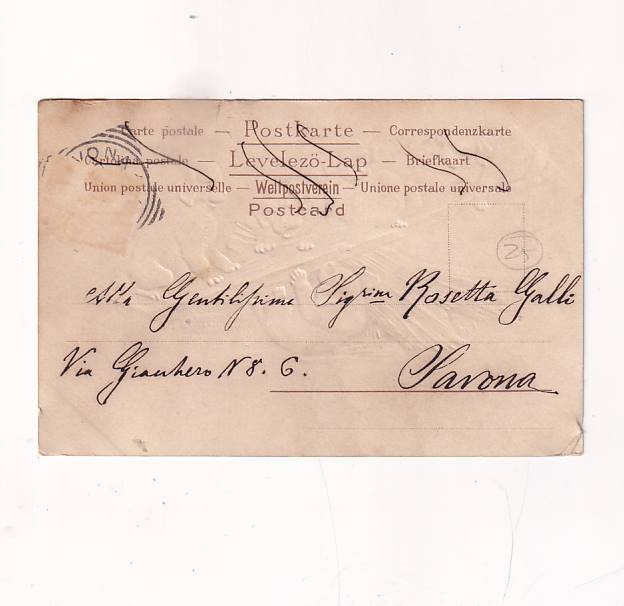 Carte postale — Postkarte — Correspondenzkarte
Cartolina postale — Levelezö-Lap — Briefkaart
Union postale universelle — Weltpostverein — Unione postale universale
Postcard
25
Alla Gentilissima Sigrina Rosetta Galli
Via N 8. 6. Savona